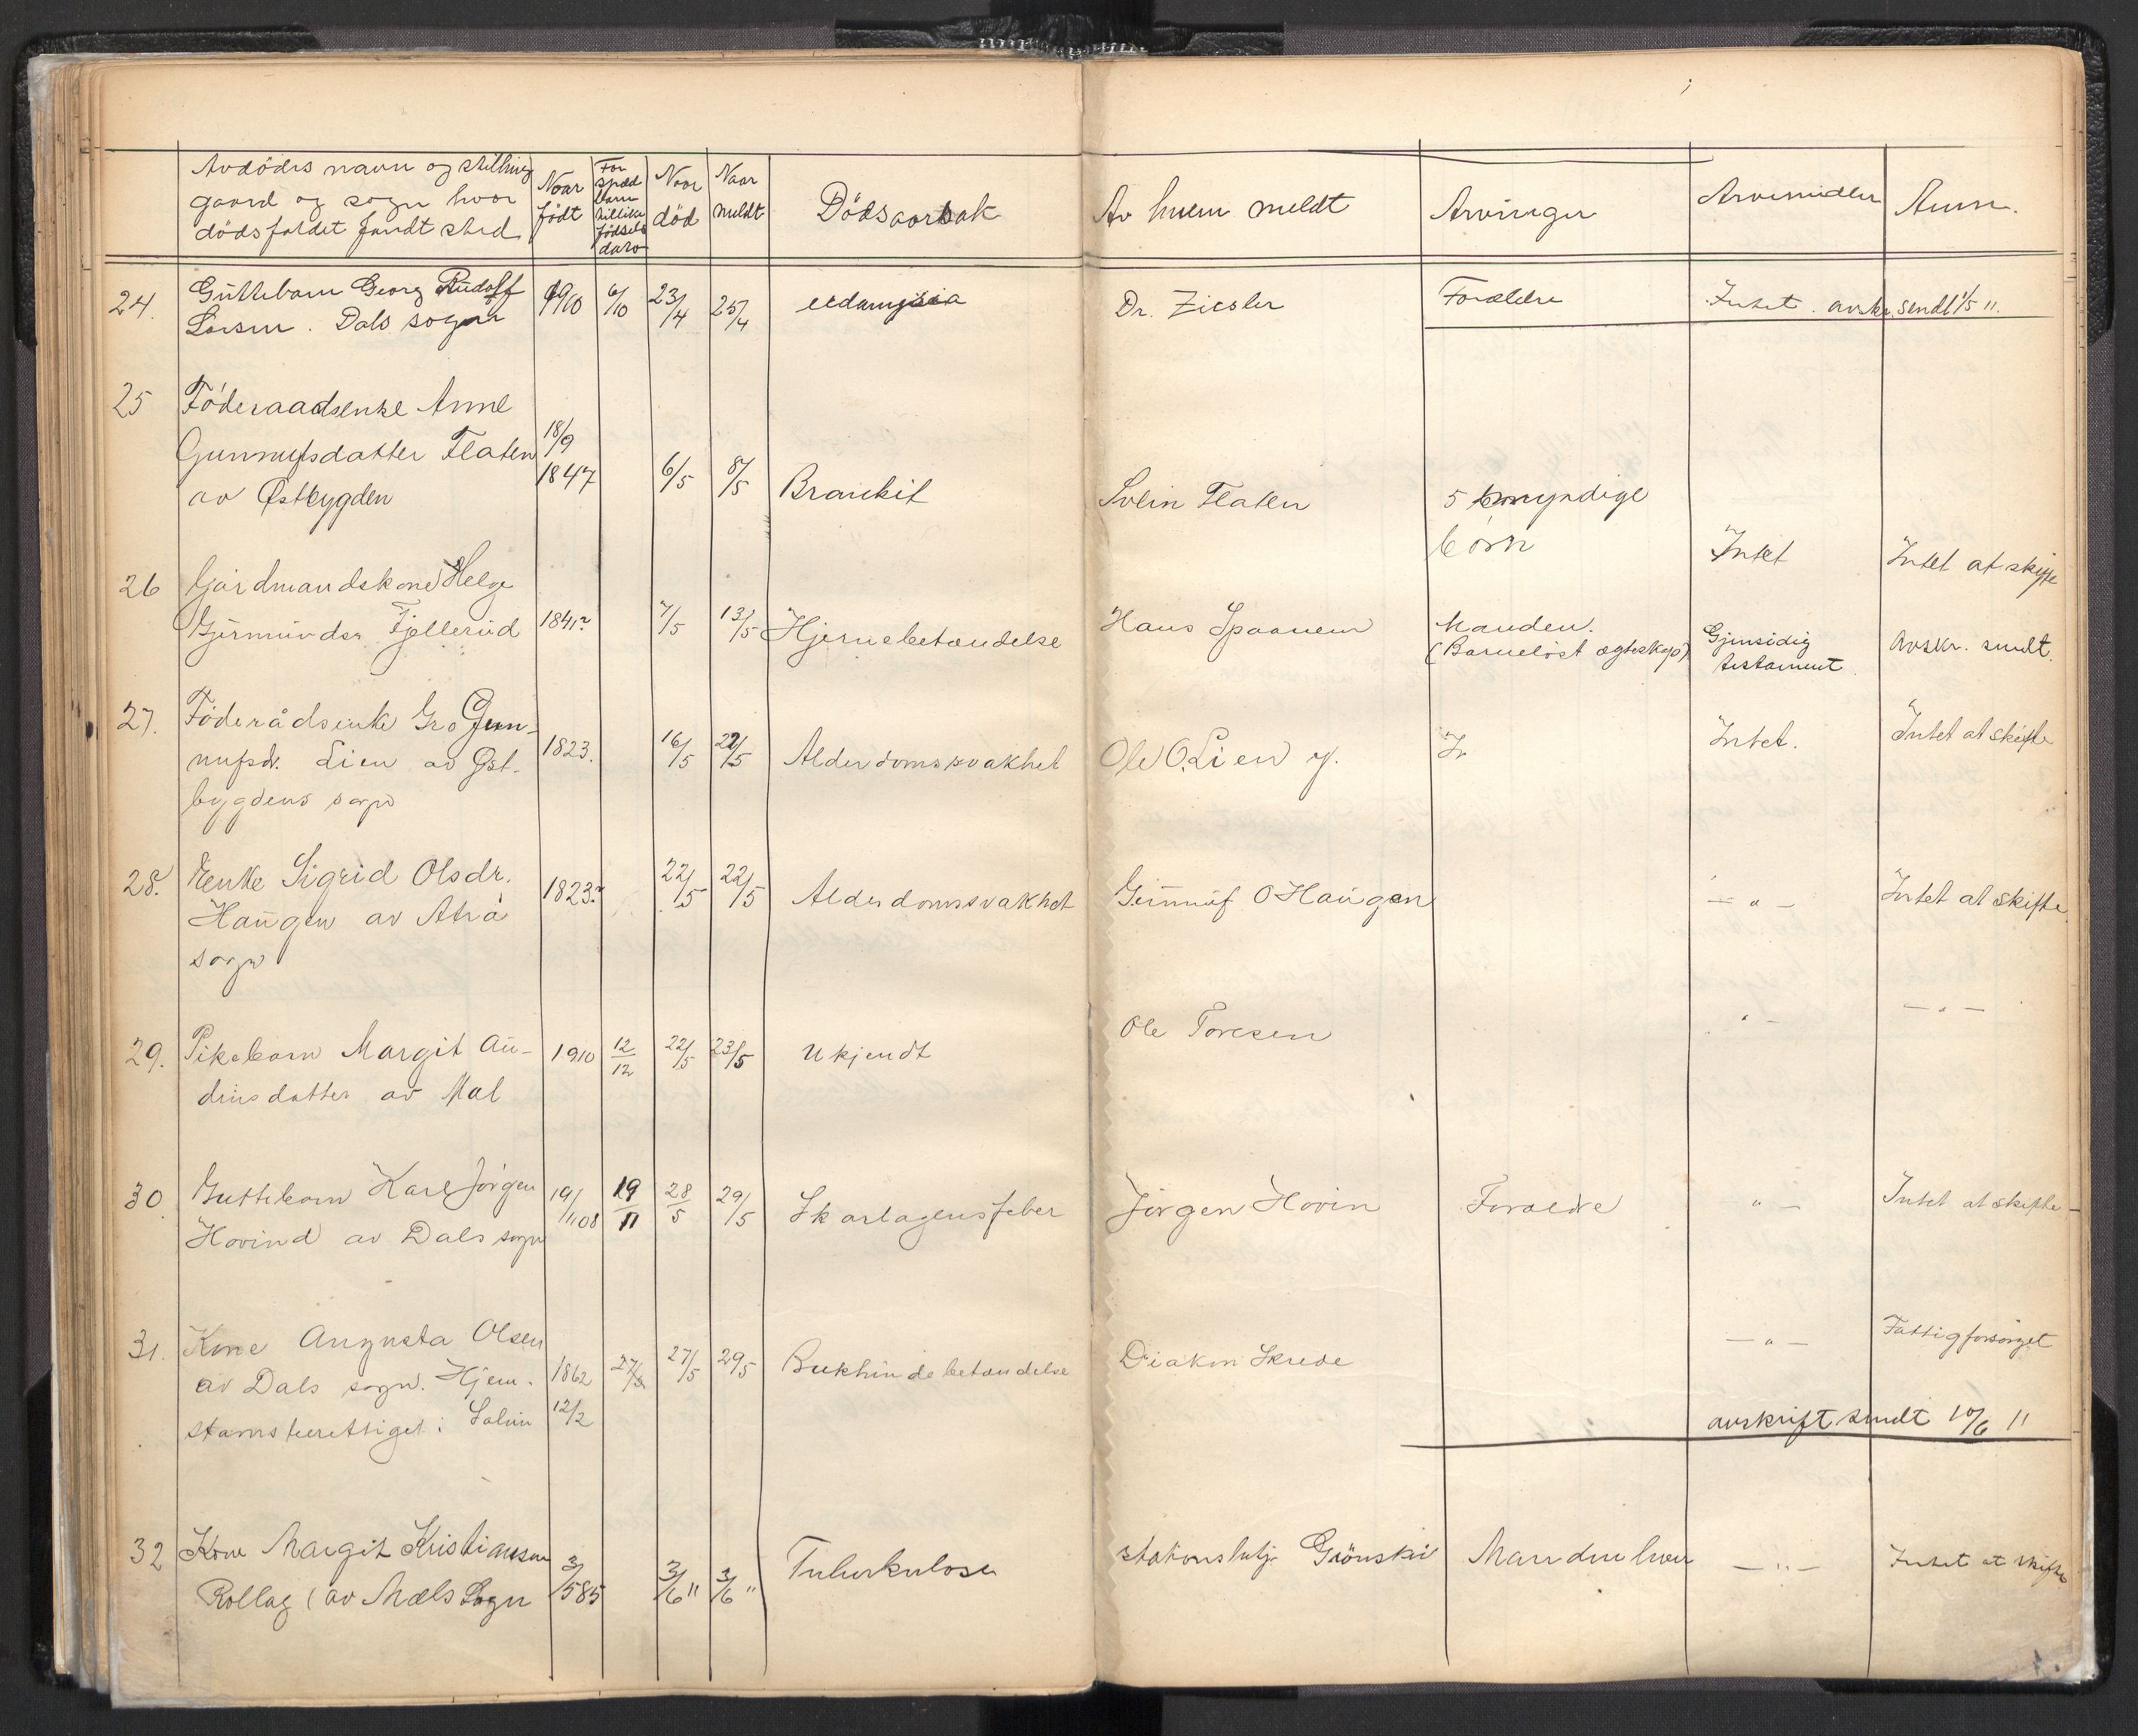 Avdödes navn og stilling gaard og sogn hvor dödsfaldet fandt sted
Naar födt
For spæd barn tillike födsels
Naar död
Naar meldt
Dödsaarsak
Av hvem meldt
Arvinger
Arvemidler
Anm.
24. Guttebarn Georg Rudolf 6/10 23/4 25/4 Dr. Ziesler Forældre Intet. avskr. sendt 1/5 11.
Larsen. Dals sogn
25 Föderaadsenke Anne
Gunnufsdatter Flaten 18/9
av Østbygden 1847 6/5 8/5 Brankit Svein Flaten 5 myndige
börn Intet Intet at skifte
26 Gårdmandskone Helge
Germundsr. Fjellerud 1841? 7/5 13/5 Hjernebetændelse Hans Spaanem Manden.
(Barnelöst ægteskap) Gjensidig testament. Avskr. sendt.
27. Föderådsenke Gro Gun-
nufsdr. Lien av Øst- 1823. 16/5 22/5 Alderdomssvakhet Ole O. Lien Intet. Intet at skifte
bygdens sogn
28. Enke Sigrid Olsdr.
Haugen av Atrå 1823? 22/5 22/5 Alderdomssvakhet Gunnuf O Haugen — " — Intet at skifte
sogn
29. Pikebarn Margit Au- 1910 12/12 22/5 23/5 Ukjendt Ole Toresen " — — " —
dunsdatter av Mæl
30. Guttebarn Karl Jörgen 19/11 08 19/11 28/5 29/5 Skarlagensfeber Jörgen Hovin Foræidre " — Intet at skifte —
Hovind av Dals sogn
31. Kone Augusta Olsen
av Dals sogn. Hjem- 1862 27/5 27/5 29 5 Bukhindebetændelse Diakon Skrede — " — Fattigforsörget
stamsberettiget i 12/2
avskrift sendt 10/6 11
32 Kone Margit Kristiansen
Rollag (av Mæls Sogn 3/5 85 3/6 11 3/6 " Tuberkulose Stationsbetj. Grönski Manden — " — Intet at skifte